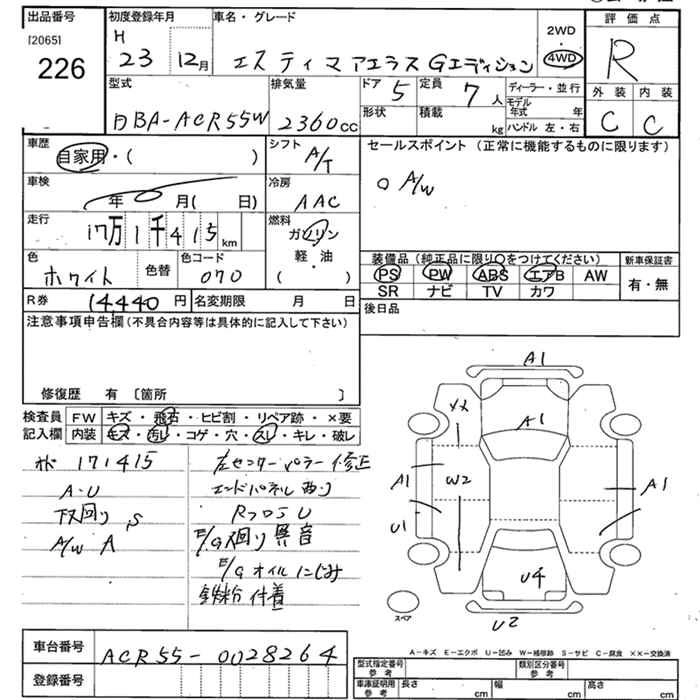 出品番号
[2065]
226
初度登録年月
H
23 12月
車名・グレード
エスティマアエラスGエディション
2WD
4WD
評価点
R
外装 内装
C C
型式
DBA-ACR55W
排気量
2360cc
ドア 5
形状
定員 7人
積載 kg
ディーラー・並行
モデル年式 年
ハンドル 左・右
車歴
自家用・( )
シフト A/T
セールスポイント (正常に機能するものに限ります)
○ A/W
車検
年 月( 日)
冷房 AAC
走行
17万1千415km
燃料
ガソリン
軽・油
( )
色
ホワイト
色替
色コード
070
装備品 (純正品に限り○をつけてください)
PS PW ABS エアB AW
SR ナビ TV カワ
新車保証書
有・無
R券 14440円
名変期限 月 日
後日品
注意事項申告欄 (不具合内容等は具体的に記入して下さい)
修復歴 有 〔箇所 〕
検査員記入欄
FW キズ・飛石・ヒビ割・リペア跡・×要
内装 キズ・汚レ・コゲ・穴・スレ・キレ・破レ
171415
A・U
下回り S
A/W A
左センターピラー修正
エンドパネル曲り
E/G回り異音
E/Gオイルにじみ
鉄粉付着
A1
XX
A1
A1
W2
A1
U1
U4
U2
スペア
A-キズ E-エクボ U-凹み W-補修跡 S-サビ C-腐食 ××-交換済
車台番号 ACR55-0028264
登録番号
型式指定番号 参考
類別区分番号 参考
車庫証明用 参考
長さ cm
幅 cm
高さ cm